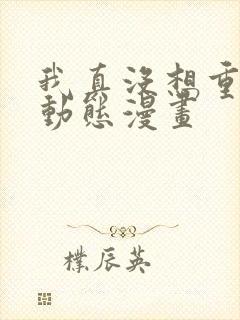 我真没想重
動態漫畫
樸辰英